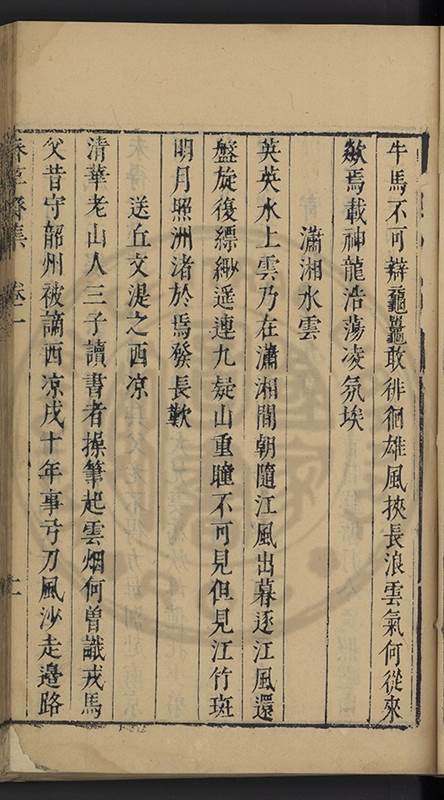 牛馬不可辯黿鼉敢徘徊雄風挾長浪雲氣何從來
歘焉載神龍浩蕩凌氛埃
瀟湘水雲
英英水上雲乃在瀟湘間朝隨江風出暮逐江風還
盤旋復縹緲遥連九疑山重瞳不可見但見江竹斑
明月照洲渚於焉發長歎
送丘文湜之西凉
清華老山人三子讀書者操筆起雲烟何曾識戎馬
父昔守韶州被謫西凉戍十年事弓刀風沙走邉路
春草齋集 卷一